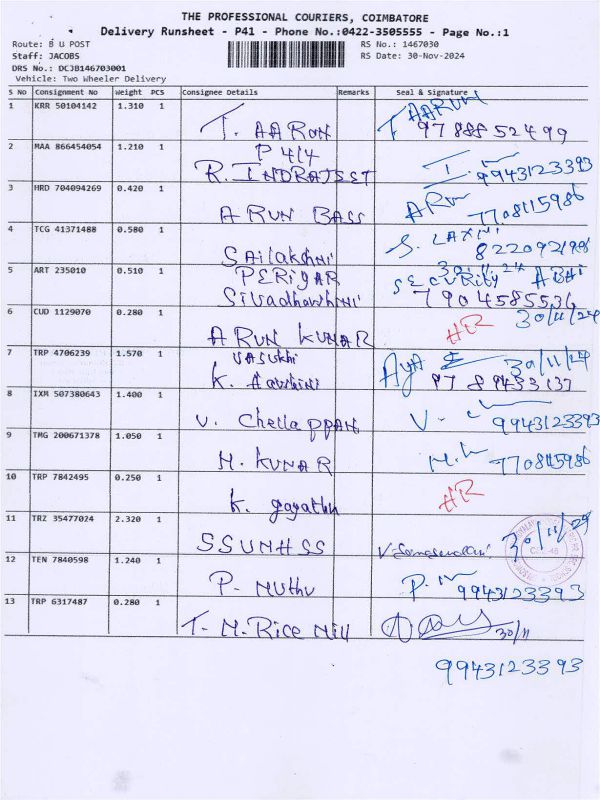 THE PROFESSIONAL COURIERS, COIMBATORE
Delivery Runsheet - P41 - Phone No.:0422-3505555 - Page No.:1
Route: B U POST
RS No.: 1467030
Staff: JACOBS
RS Date: 30-Nov-2024
DRS No.: DCJB146703001
Vehicle: Two Wheeler Delivery
S No Consignment No Weight PCS Consignee Details Remarks Seal & Signature
1 KRR 50104142 1.310 1 T. AARON T AARUN
97888 52499
2 MAA 866454054 1.210 1 P 414
R. INDRAJEET 9943123393
3 HRD 704094269 0.420 1 ARUN BASS ARUN
7708115986
4 TCG 41371488 0.580 1 Sailakshmi S. LAXMI
8220921986
30.11.24
5 ART 235010 0.510 1 PERIYAR SECURITY ABAI
7904585536
6 CUD 1129070 0.280 1 ARUN KUMAR HR 30/11/24
7 TRP 4706239 1.570 1 VASUKHI
K. 30/11/24
8 IXM 507380643 1.400 1 V. Chellappan V.
9943123393
9 TMG 200671378 1.050 1 M. KUMAR
10 TRP 7842495 0.250 1 K. gayathri HR
11 TRZ 35477024 2.320 1 SSUNHSS 30/11/24
12 TEN 7840598 1.240 1 P. Muthu P.
9943123393
13 TRP 6317487 0.280 1 T. M. Rice Mill 30/11
9943123393